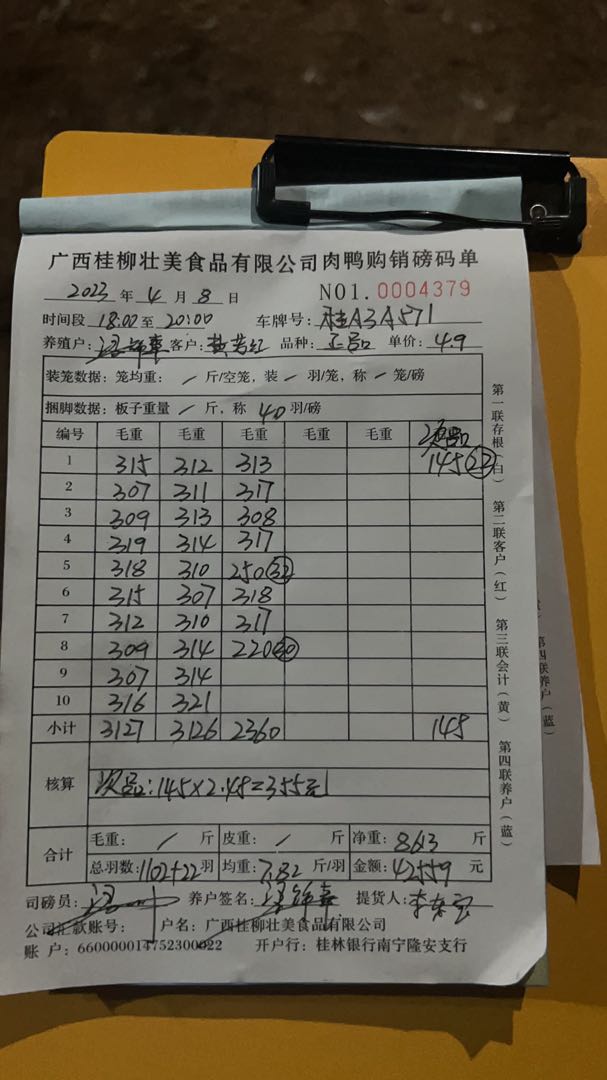 广西桂柳壮美食品有限公司肉鸭购销磅码单
2023 年 4 月 8 日 NO1. 0004379
时间段 18:00 至 20:00 车牌号: 桂A3A571
养殖户: 客户: 品种: 正品 单价: 4.9
装笼数据: 笼均重: / 斤/空笼, 装 / 羽/笼, 称 / 笼/磅
捆脚数据: 板子重量 / 斤, 称 40 羽/磅
编号 毛重 毛重 毛重 毛重 毛重 次品
1 315 312 313 145 22
2 307 311 317
3 309 313 308
4 319 314 317
5 318 310 250 32
6 315 307 318
7 312 310 317
8 309 314 220 30
9 307 314
10 316 321
小计 3127 3126 2360 145
核算 次品: 145×2.45=355元
合计 毛重: / 斤 皮重: / 斤 净重: 8613 斤
总羽数: 1102+22 羽 均重: 7.82 斤/羽 金额: 42559 元
司磅员: 养户签名: 提货人:
公司汇款账号: 户名: 广西桂柳壮美食品有限公司
账 户: 660000014752300022 开户行: 桂林银行南宁隆安支行
第一联存根(白) 第二联客户(红) 第三联会计(黄) 第四联养户(蓝)